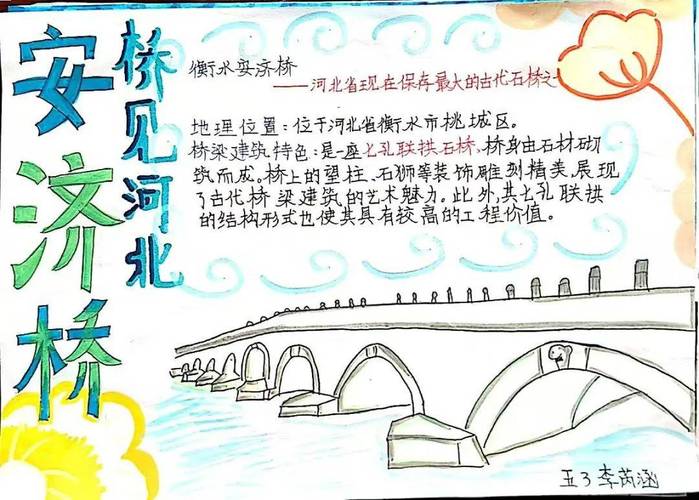 安济桥
桥见河北
衡水安济桥
——河北省现在保存最大的古代石桥之一
地理位置：位于河北省衡水市桃城区。
桥梁建筑特色：是一座七孔联拱石桥，桥身由石材砌
筑而成。桥上的望柱、石狮等装饰雕刻精美，展现
了古代桥梁建筑的艺术魅力。此外，其七孔联拱
的结构形式也使其具有较高的工程价值。
五3李芮涵